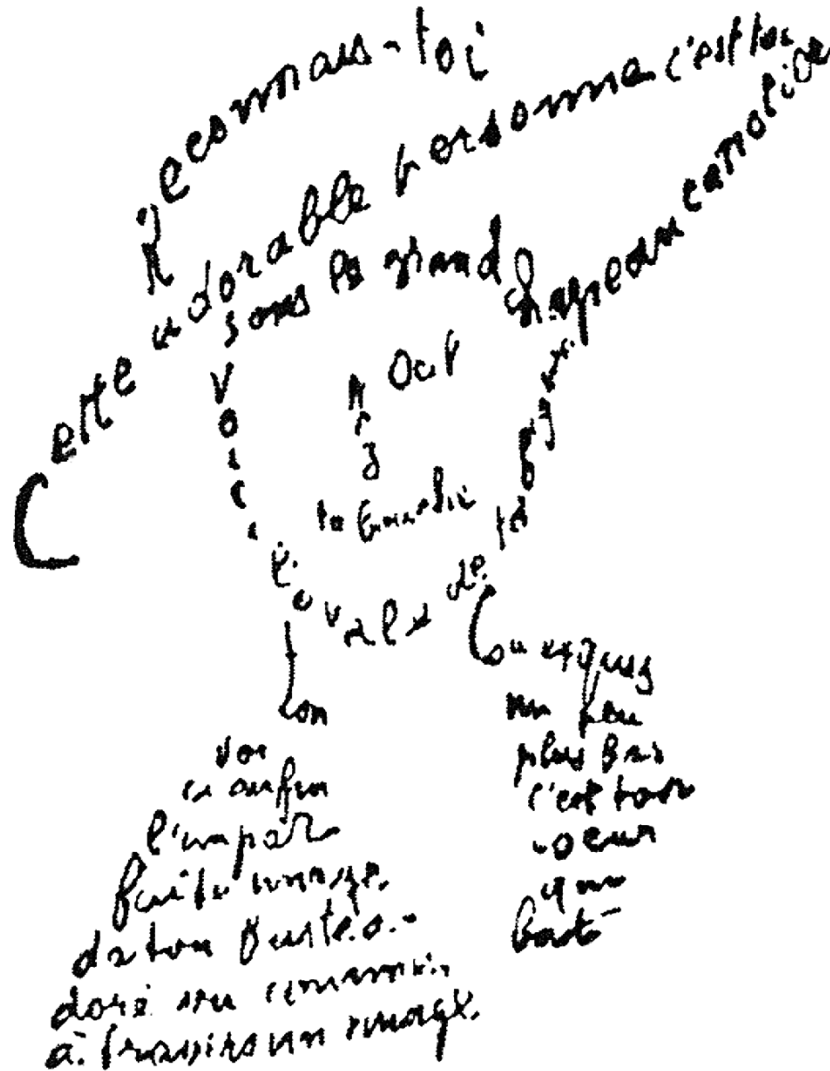 Reconnais-toi
Cette adorable personne c'est toi
sous le grand chapeau canotier
Œil
Nez
ta bouche
Voici l'ovale de ta figure
ton
cou exquis
voi
ci enfin
l'impar
faite image
de ton buste a
doré vu comme
à travers un nuage
un peu
plus bas
c'est ton
coeur
qui
bat